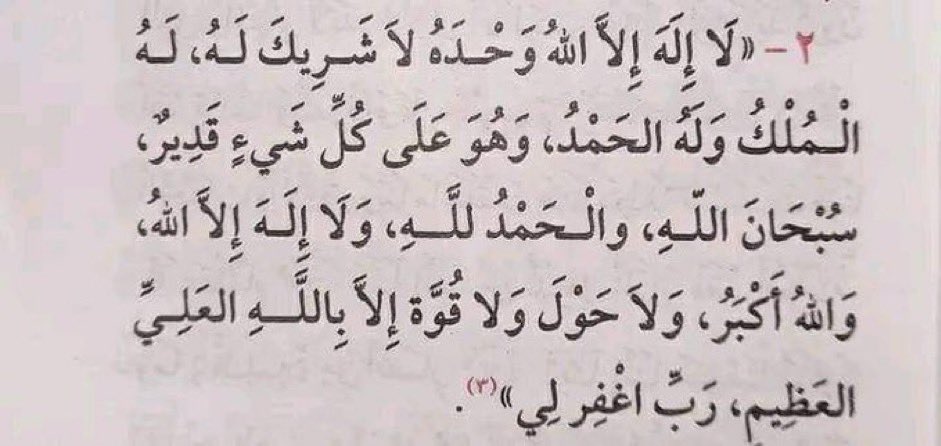 ٢ - «لَا إِلَهَ إِلاَّ اللهُ وَحْدَهُ لاَ شَرِيكَ لَهُ، لَهُ
الْمُلْكُ وَلَهُ الحَمْدُ، وَهُوَ عَلَى كُلِّ شَيءٍ قَدِيرٌ،
سُبْحَانَ اللّهِ، والْحَمْدُ للَّهِ، وَلَا إِلَهَ إِلاَّ اللهُ،
وَاللهُ أَكْبَرُ، وَلاَ حَوْلَ وَلا قُوَّة إِلاَّ بِاللَّهِ العَلِيِّ
العَظِيمِ، رَبِّ اغْفِر لِي»(٣).